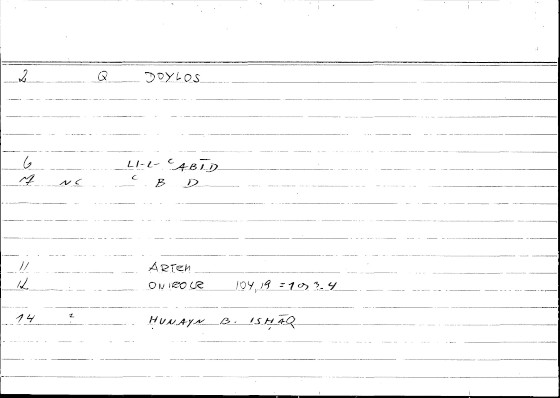 2 Q DOYLOS
6 LI-L-ʿABĪD
7 NC ʿ B D
11 ARTEM
12 ONIROCR 104,19 =
14 ḤUNAYN B. ISḤĀQ